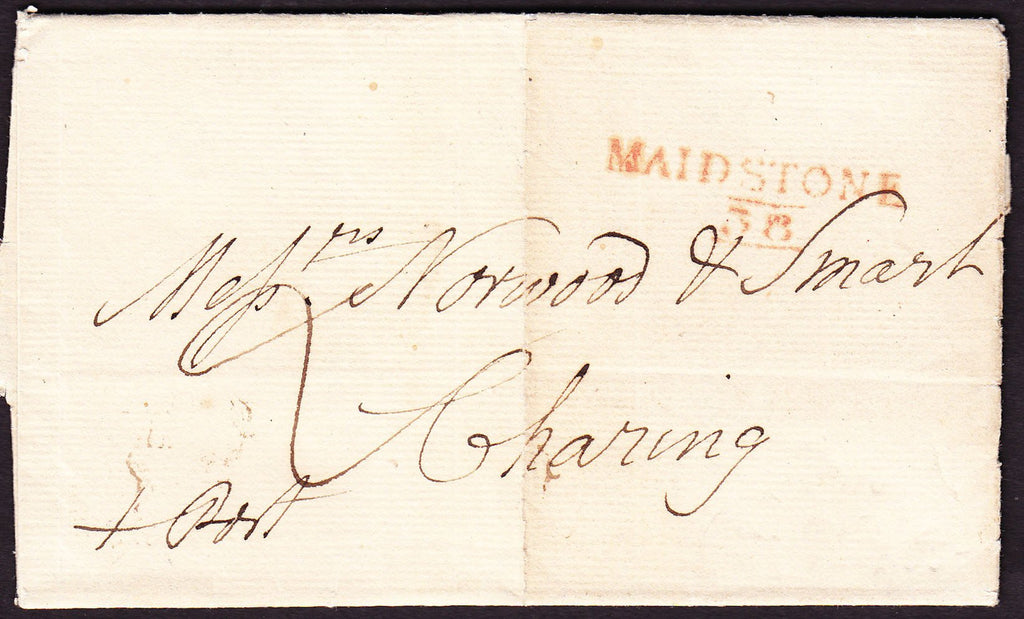 MAIDSTONE
38
Messrs. Norwood & Smart
Charing
+ Post